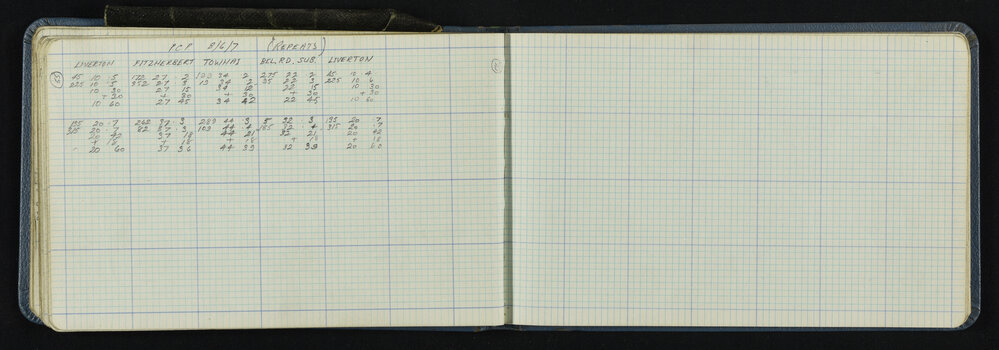 PCP 8/6/7 (REPEATS)
LIVERTON FITZHERBERT TOWHAI BEL. RD. SUB. LIVERTON
45 10 5 172 27 2 123 34 2 275 22 2 45 10 4
225 10 5 352 27 3 13 34 2 35 22 3 225 10 6
10 30 27 15 34 12 22 15 10 30
+ 30 + 30 + 30 + 30 + 30
10 60 27 45 34 42 22 45 10 60
135 20 .7 262 37 .3 289 44 .3 5 32 .3 135 20 .7
315 20 .7 82 37 .3 103 44 .4 185 32 .4 315 20 .7
20 42 37 18 44 21 32 21 20 42
+ 18 + 18 + 18 + 18 + 18
20 60 37 36 44 39 32 39 20 60